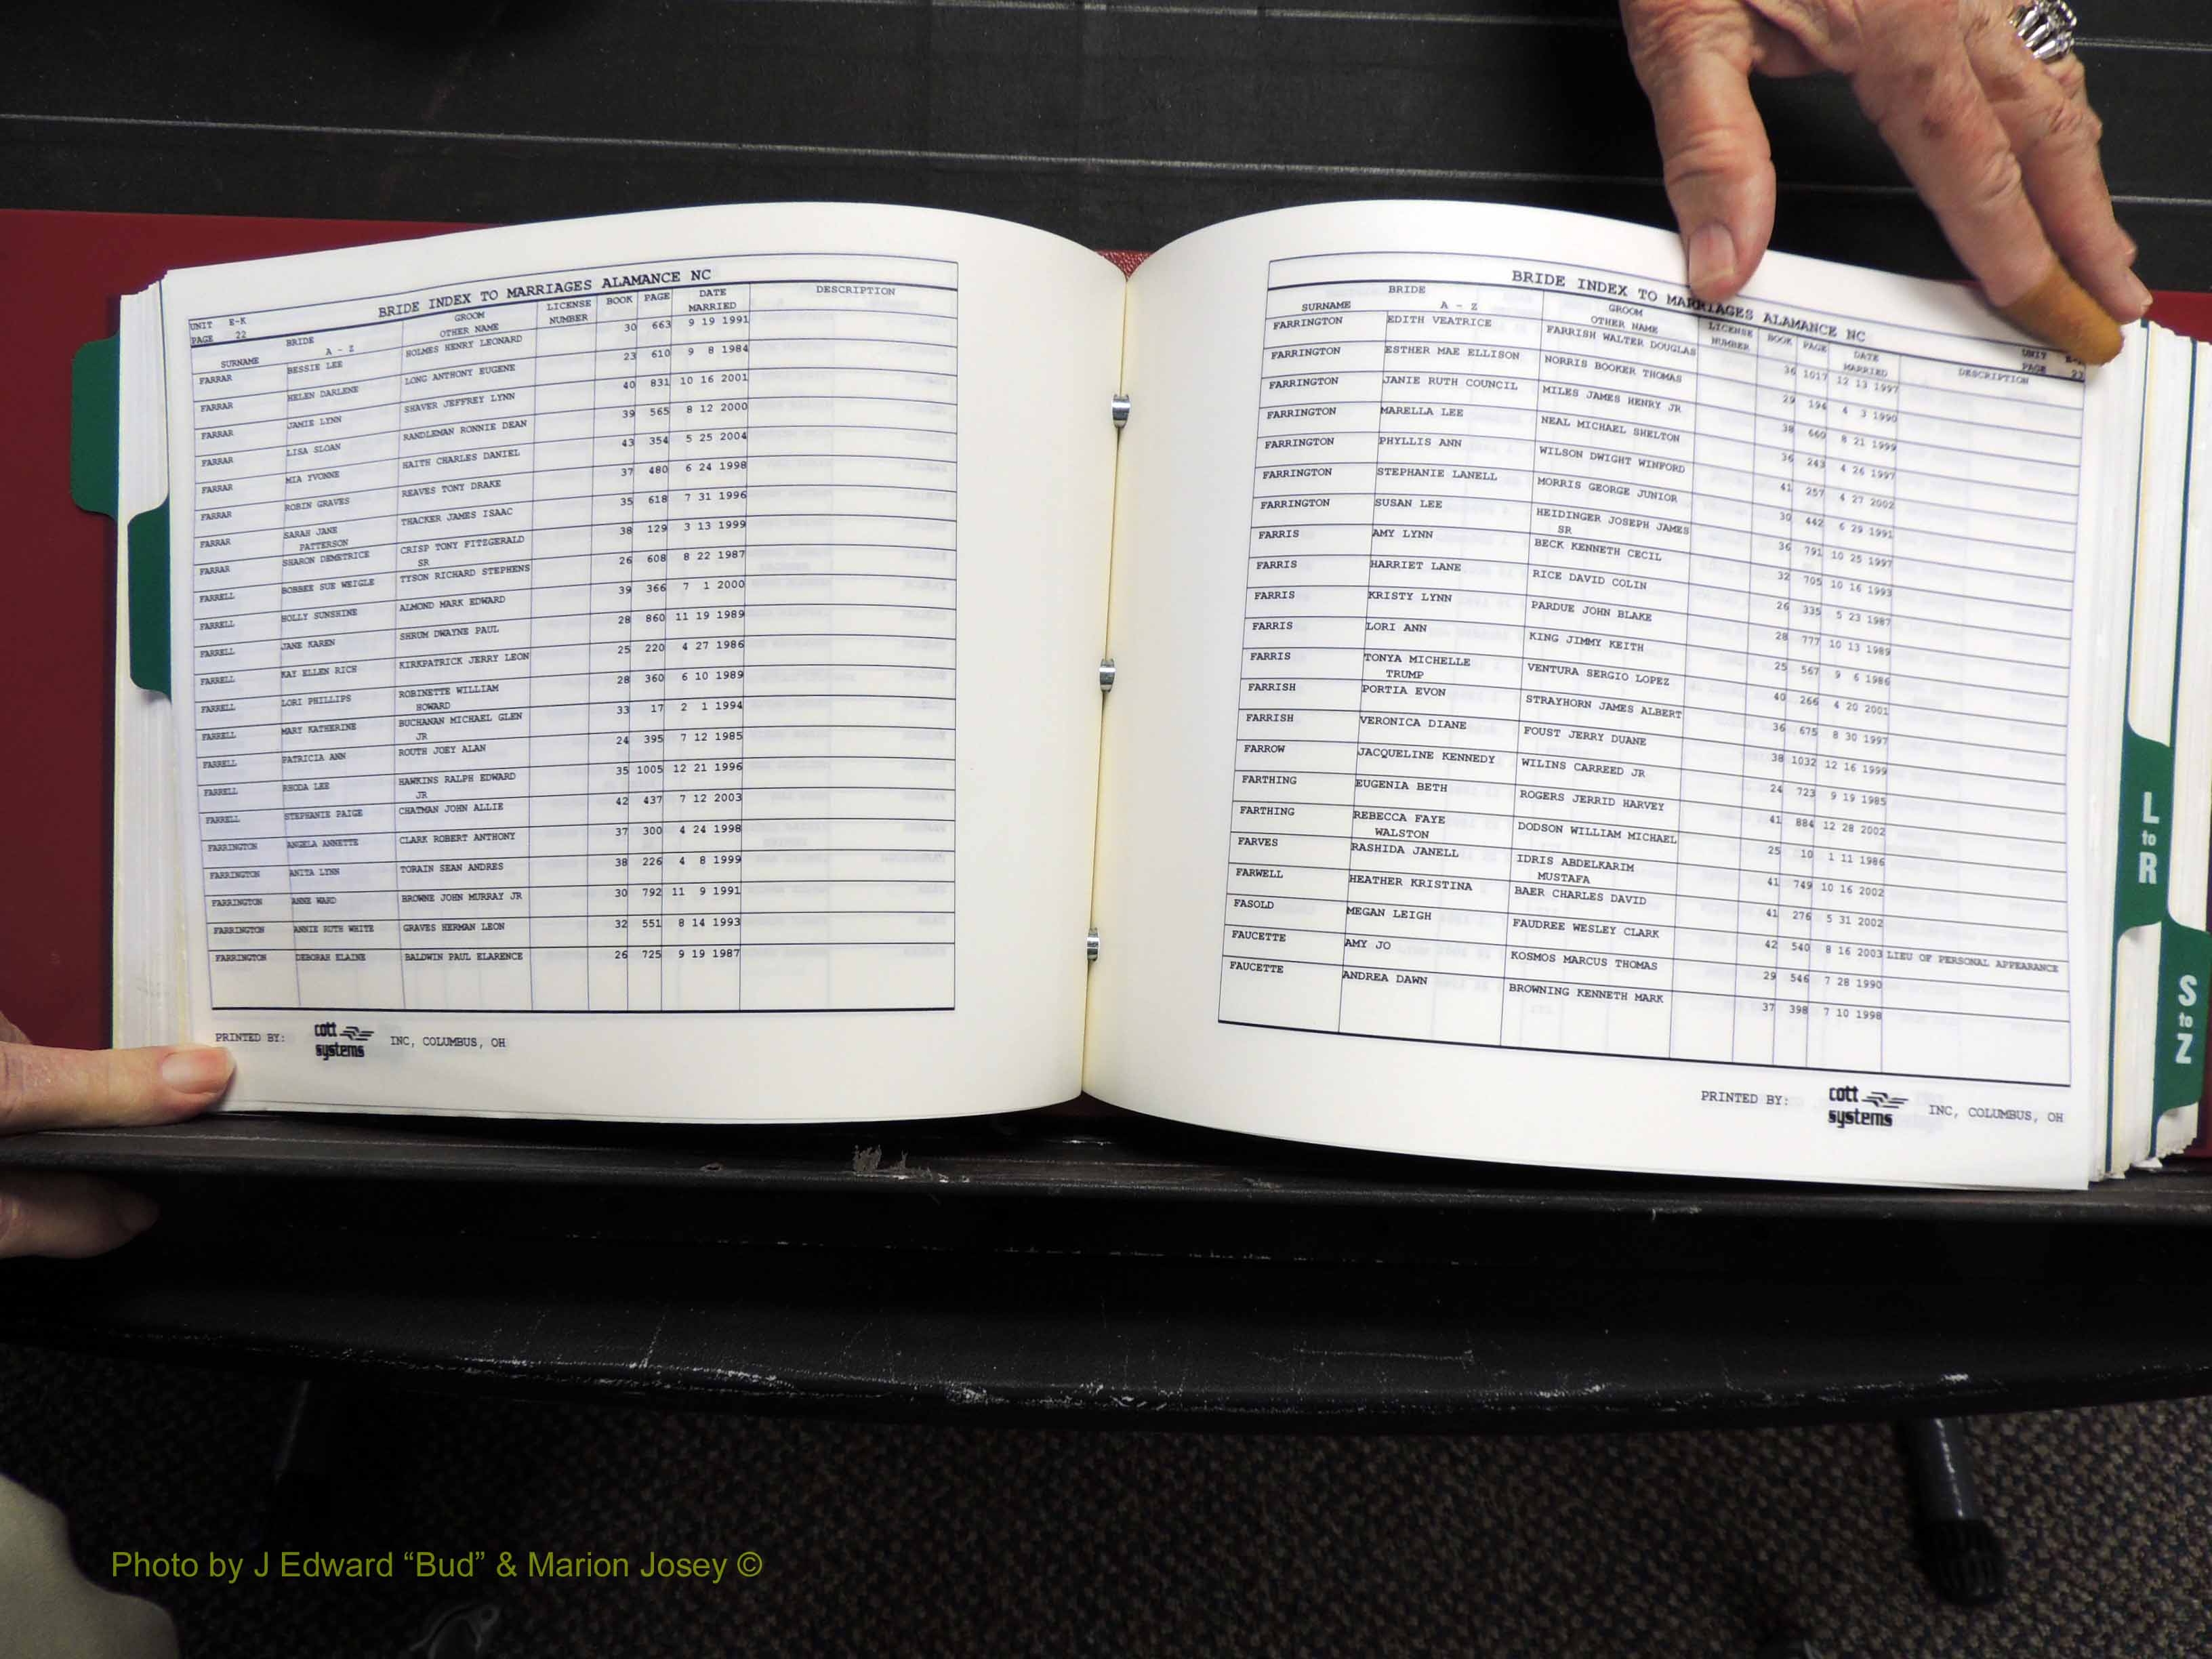 BRIDE INDEX TO MARRIAGES ALAMANCE NC
UNIT E-K
PAGE 22
BRIDE GROOM LICENSE BOOK PAGE DATE DESCRIPTION
SURNAME A - Z OTHER NAME NUMBER MARRIED
FARRAR BESSIE LEE HOLMES HENRY LEONARD 30 663 9 19 1991
FARRAR HELEN DARLENE LONG ANTHONY EUGENE 23 610 9 8 1984
FARRAR JAMIE LYNN SHAVER JEFFREY LYNN 40 831 10 16 2001
FARRAR LISA SLOAN RANDLEMAN RONNIE DEAN 39 565 8 12 2000
FARRAR MIA YVONNE HAITH CHARLES DANIEL 43 354 5 25 2004
FARRAR ROBIN GRAVES REAVES TONY DRAKE 37 480 6 24 1998
FARRAR SARAH JANE THACKER JAMES ISAAC 35 618 7 31 1996
PATTERSON
FARRAR SHARON DEMETRICE CRISP TONY FITZGERALD 38 129 3 13 1999
SR
FARRELL BOBBEE SUE WEIGLE TYSON RICHARD STEPHENS 26 608 8 22 1987
FARRELL HOLLY SUNSHINE ALMOND MARK EDWARD 39 366 7 1 2000
FARRELL JANE KAREN SHRUM DWAYNE PAUL 28 860 11 19 1989
FARRELL KAY ELLEN RICH KIRKPATRICK JERRY LEON 25 220 4 27 1986
FARRELL LORI PHILLIPS ROBINETTE WILLIAM 28 360 6 10 1989
HOWARD
FARRELL MARY KATHERINE BUCHANAN MICHAEL GLEN 33 17 2 1 1994
JR
FARRELL PATRICIA ANN ROUTH JOEY ALAN 24 395 7 12 1985
FARRELL RHODA LEE HAWKINS RALPH EDWARD 35 1005 12 21 1996
JR
FARRELL STEPHANIE PAIGE CHATMAN JOHN ALLIE 42 437 7 12 2003
FARRINGTON ANGELA ANNETTE CLARK ROBERT ANTHONY 37 300 4 24 1998
FARRINGTON ANITA LYNN TORAIN SEAN ANDRES 38 226 4 8 1999
FARRINGTON ANNE WARD BROWNE JOHN MURRAY JR 30 792 11 9 1991
FARRINGTON ANNIE RUTH WHITE GRAVES HERMAN LEON 32 551 8 14 1993
FARRINGTON DEBORAH ELAINE BALDWIN PAUL ELARENCE 26 725 9 19 1987
PRINTED BY: cott systems INC, COLUMBUS, OH
BRIDE INDEX TO MARRIAGES ALAMANCE NC
UNIT
PAGE 23
BRIDE GROOM LICENSE BOOK PAGE DATE DESCRIPTION
SURNAME A - Z OTHER NAME NUMBER MARRIED
FARRINGTON EDITH VEATRICE FARRISH WALTER DOUGLAS 36 1017 12 13 1997
FARRINGTON ESTHER MAE ELLISON NORRIS BOOKER THOMAS 29 194 4 3 1990
FARRINGTON JANIE RUTH COUNCIL MILES JAMES HENRY JR 38 660 8 21 1999
FARRINGTON MARELLA LEE NEAL MICHAEL SHELTON 36 243 4 26 1997
FARRINGTON PHYLLIS ANN WILSON DWIGHT WINFORD 41 257 4 27 2002
FARRINGTON STEPHANIE LANELL MORRIS GEORGE JUNIOR 30 442 6 29 1991
FARRINGTON SUSAN LEE HEIDINGER JOSEPH JAMES 36 791 10 25 1997
SR
FARRIS AMY LYNN BECK KENNETH CECIL 32 705 10 16 1993
FARRIS HARRIET LANE RICE DAVID COLIN 26 335 5 23 1987
FARRIS KRISTY LYNN PARDUE JOHN BLAKE 28 777 10 13 1989
FARRIS LORI ANN KING JIMMY KEITH 25 567 9 6 1986
FARRIS TONYA MICHELLE VENTURA SERGIO LOPEZ 40 266 4 20 2001
TRUMP
FARRISH PORTIA EVON STRAYHORN JAMES ALBERT 36 675 8 30 1997
FARRISH VERONICA DIANE FOUST JERRY DUANE 38 1032 12 16 1999
FARROW JACQUELINE KENNEDY WILINS CARREED JR 24 723 9 19 1985
FARTHING EUGENIA BETH ROGERS JERRID HARVEY 41 884 12 28 2002
FARTHING REBECCA FAYE DODSON WILLIAM MICHAEL 25 10 1 11 1986
WALSTON
FARVES RASHIDA JANELL IDRIS ABDELKARIM 41 749 10 16 2002
MUSTAFA
FARWELL HEATHER KRISTINA BAER CHARLES DAVID 41 276 5 31 2002
FASOLD MEGAN LEIGH FAUDREE WESLEY CLARK 42 540 8 16 2003 LIEU OF PERSONAL APPEARANCE
FAUCETTE AMY JO KOSMOS MARCUS THOMAS 29 546 7 28 1990
FAUCETTE ANDREA DAWN BROWNING KENNETH MARK 37 398 7 10 1998
PRINTED BY: cott systems INC, COLUMBUS, OH
L
to
R
S
to
Z
Photo by J Edward “Bud” & Marion Josey ©